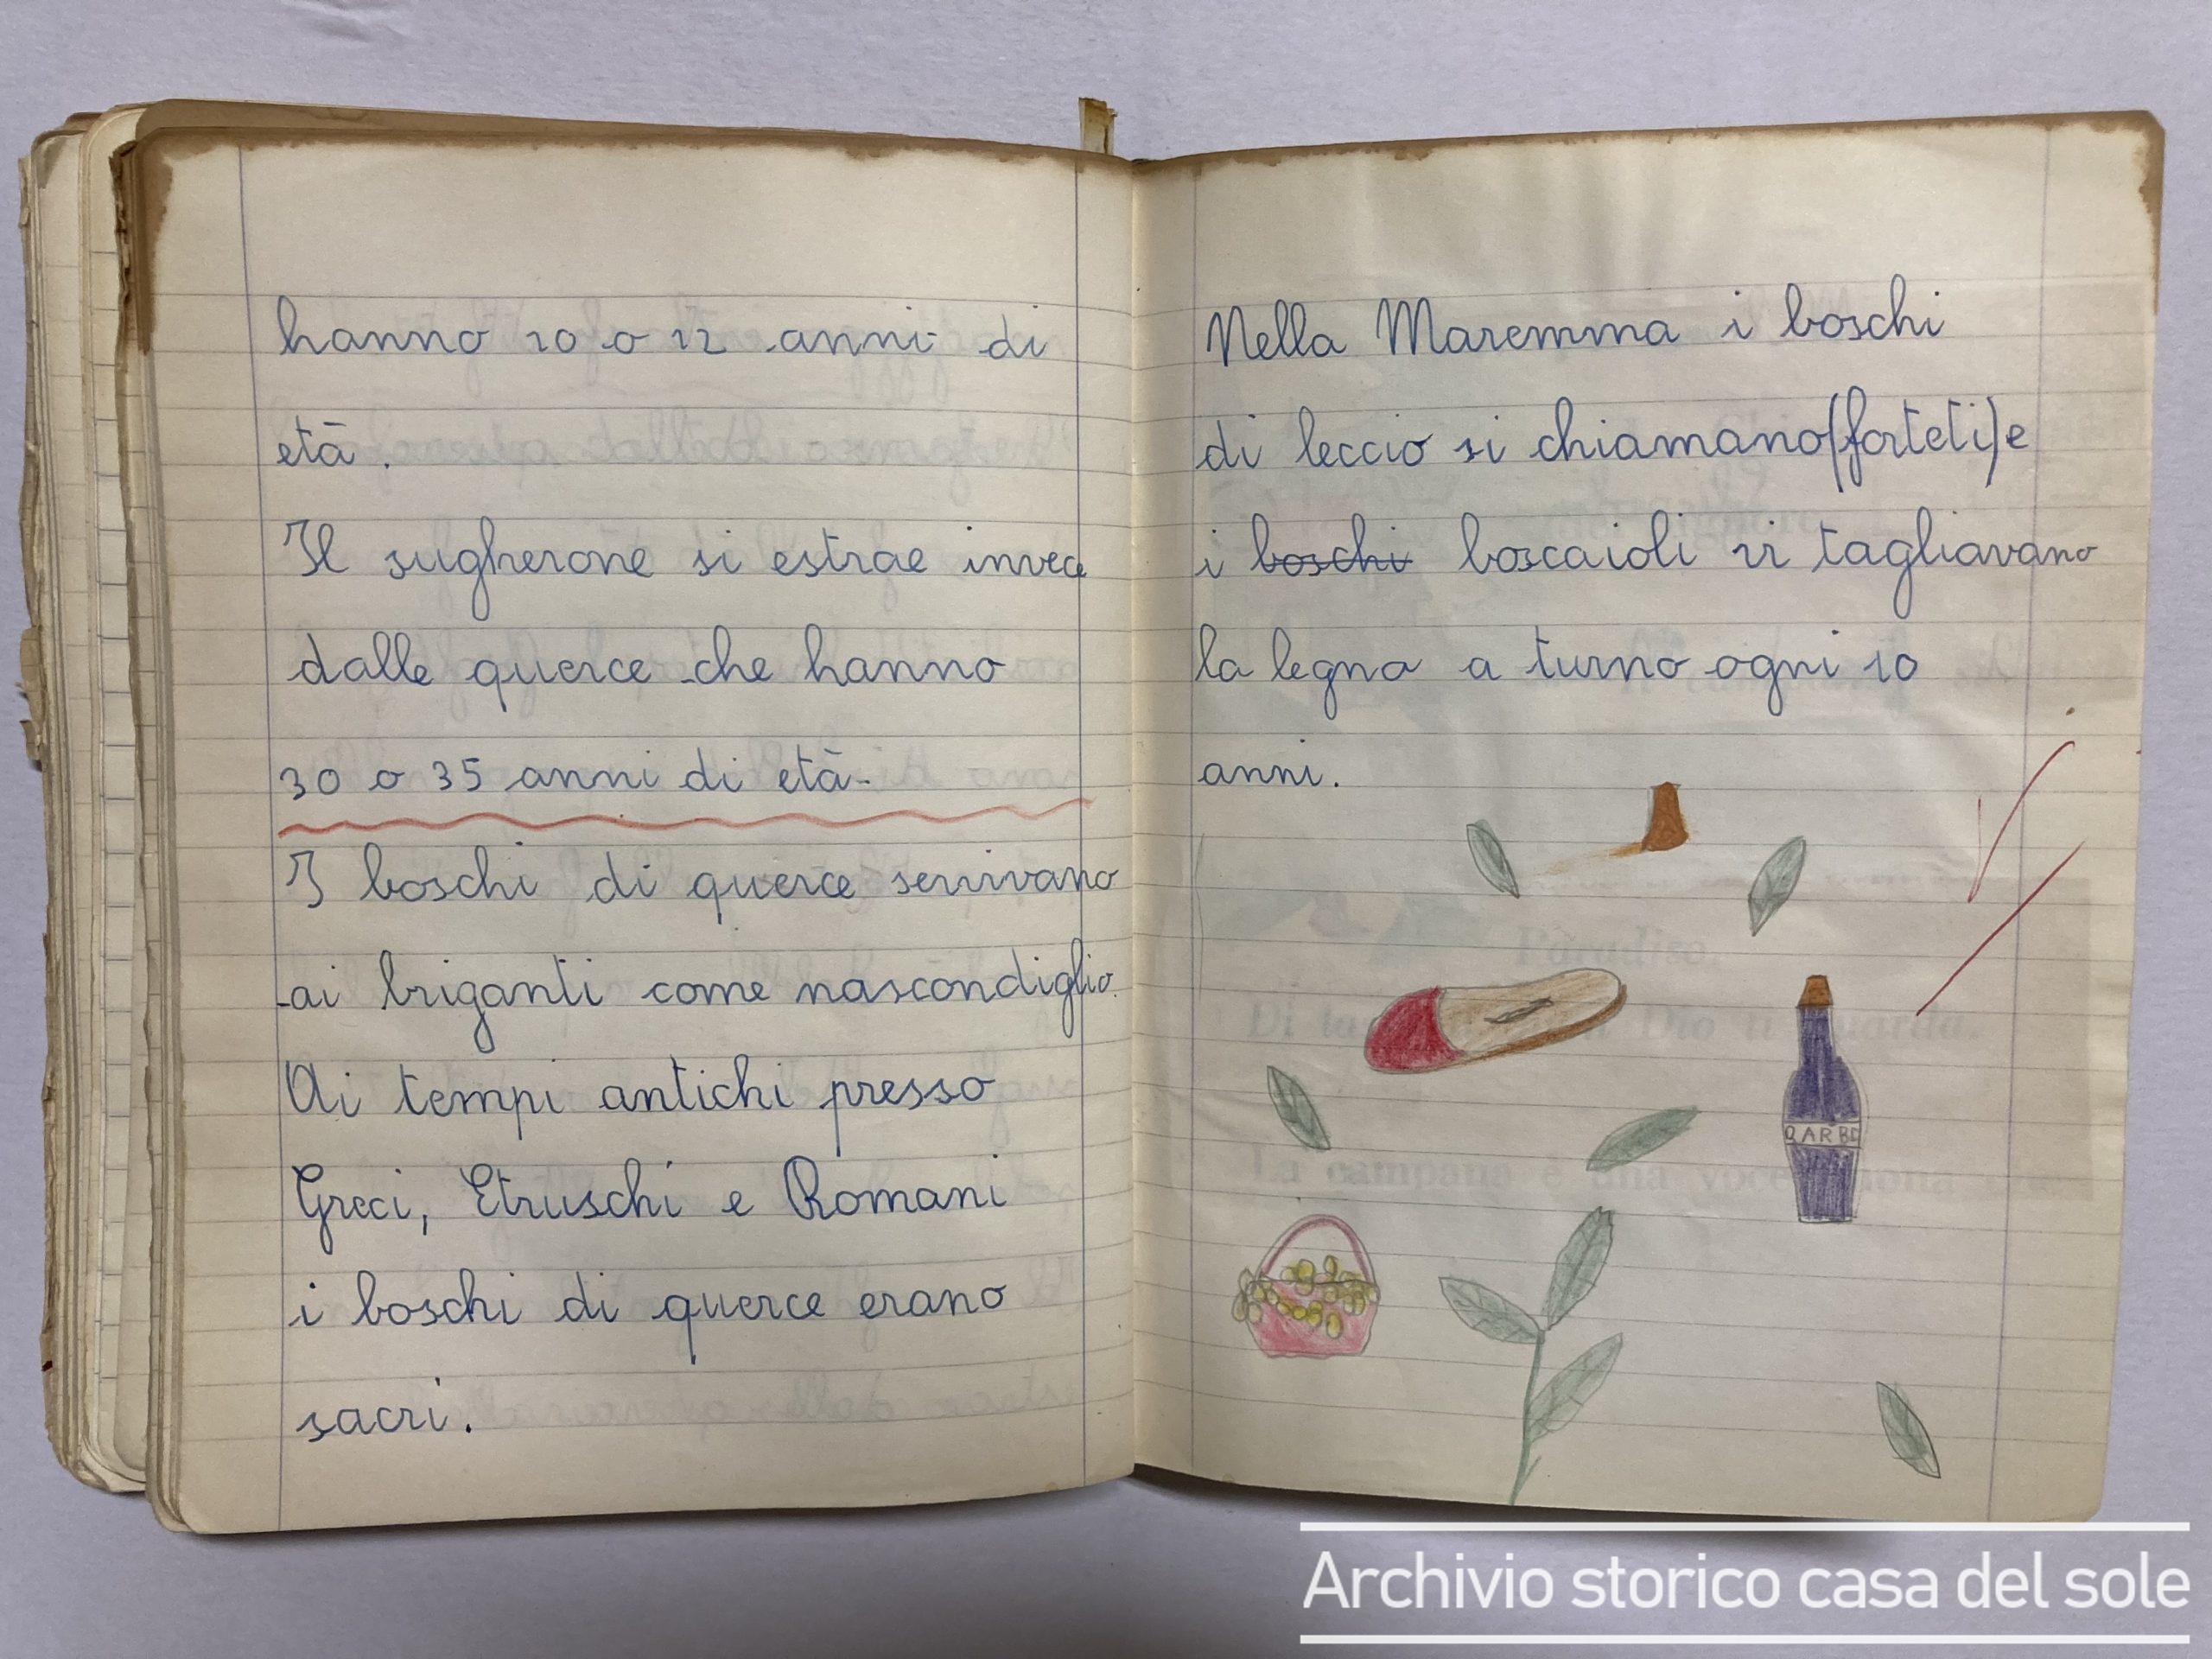 hanno 10 o 12 anni di
età.
Il sugherone si estrae invece
dalle querce che hanno
30 o 35 anni di età.
I boschi di querce servivano
ai briganti come nascondiglio.
Ai tempi antichi presso
Greci, Etruschi e Romani
i boschi di querce erano
sacri.
Nella Maremma i boschi
di leccio si chiamano (forteti) e
i boschi boscaioli vi tagliavano
la legna a turno ogni 10
anni.
Paradiso.
La campana è una voce
Archivio storico casa del sole